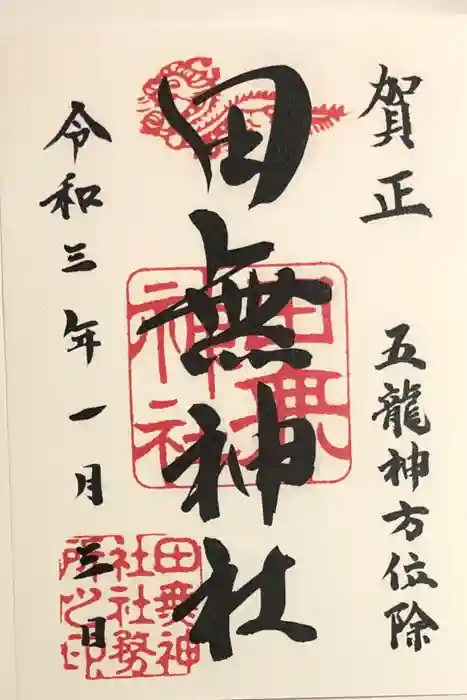 賀正
五龍神方位除
田無神社
令和三年一月三日
田無神社
田無神
社社務
所之印